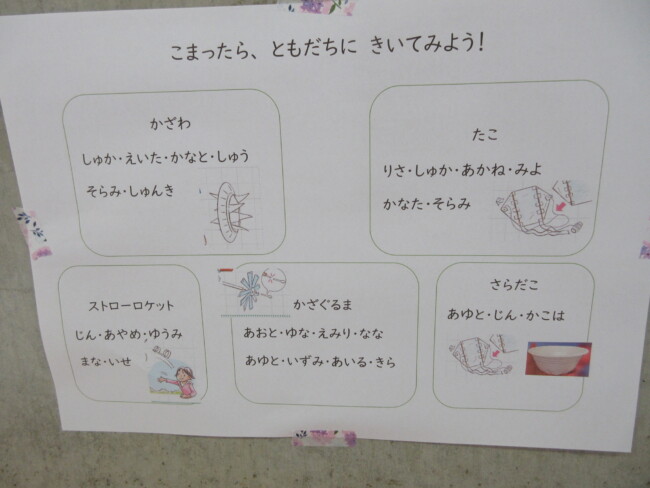 こまったら、ともだちに きいてみよう!
かざわ
しゅか・えいた・かなと・しゅう
そらみ・しゅんき
たこ
りさ・しゅか・あかね・みよ
かなた・そらみ
ストローロケット
じん・あやめ・ゆうみ
まな・いせ
かざぐるま
あおと・ゆな・えみり・なな
あゆと・いずみ・あいる・きら
さらだこ
あゆと・じん・かこは